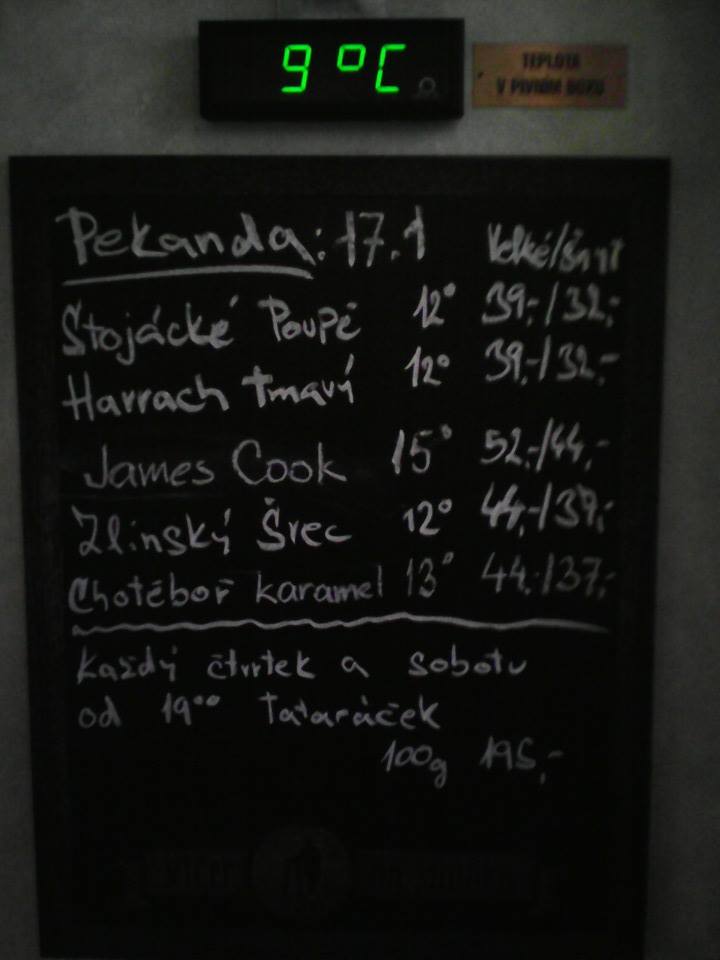 9 °C
TEPLOTA
V PIVNÍM BOXU
Pekanda: 17.1 Velké/
Stojácké Poupě 12° 39,-/32,-
Harrach tmavý 12° 39,-/32,-
James Cook 15° 52,-/44,-
Zlínský Švec 12° 44,-/39,-
Chotěboř karamel 13° 44,-/37,-
Každý čtvrtek a sobotu
od 19°° Tataráček
100g 195,-